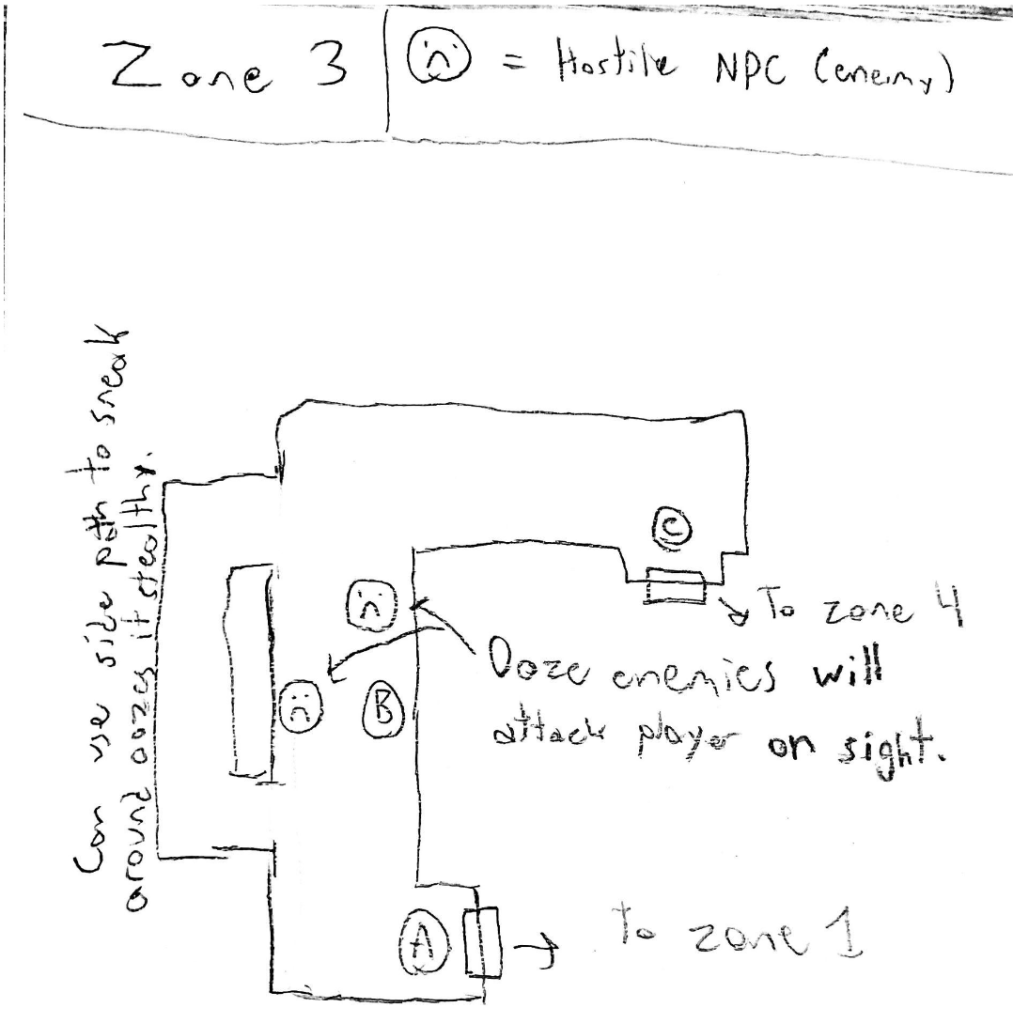 Zone 3
= Hostile NPC (enemy)
Can use side path to sneak
around oozes if stealthy.
C
To zone 4
Ooze enemies will
attack player on sight.
B
A
To zone 1